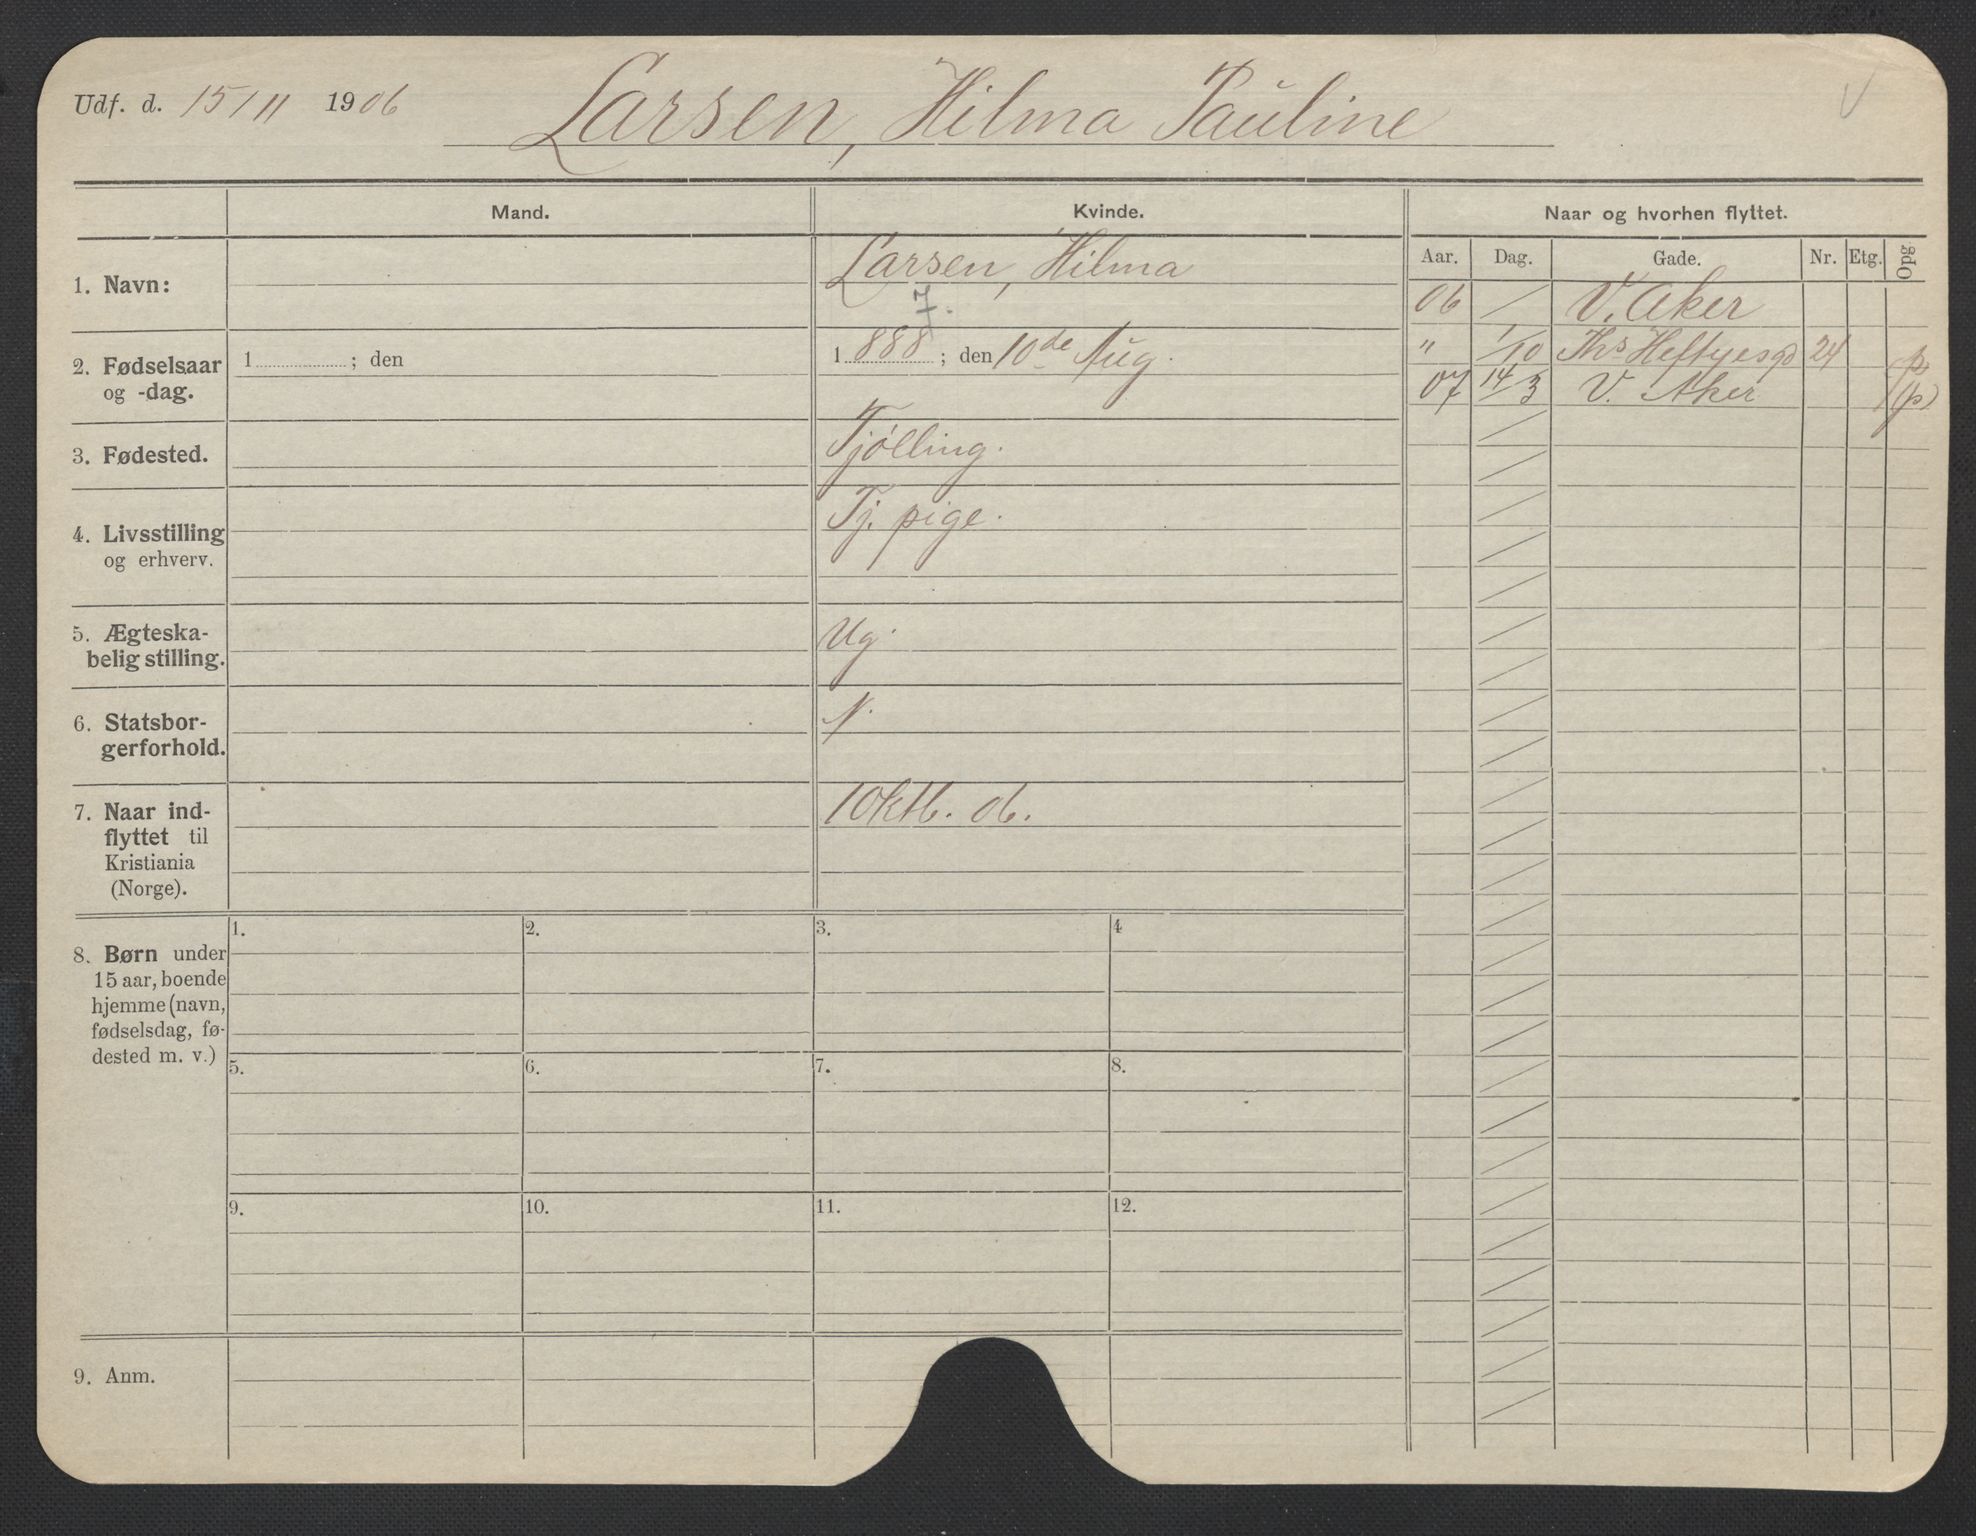 Udf. d. 15/11 1906 Larsen, Hilma Pauline
Mand. Kvinde. Naar og hvorhen flyttet.
Aar. Dag. Gade. Nr. Etg. Opg
1. Navn: Larsen, Hilma
7.
2. Fødselsaar og -dag.
1 ; den
1888 ; den 10de Aug.
3. Fødested. Tjölling.
4. Livsstilling og erhverv. Tj. pige.
5. Ægteska-
belig stilling. Ug.
6. Statsbor-
gerforhold. N.
7. Naar ind-
flyttet til
Kristiania
(Norge).
1 Oktb. 06.
8. Børn under
15 aar, boende
hjemme (navn,
fødselsdag, fø-
dested m. v.)
1. 2. 3. 4
5. 6. 7. 8.
9. 10. 11. 12.
9. Anm.
06 / V. Aker
" 1/10 Ths Heftyesgd 24 p
07 14/3 V. Aker (p)